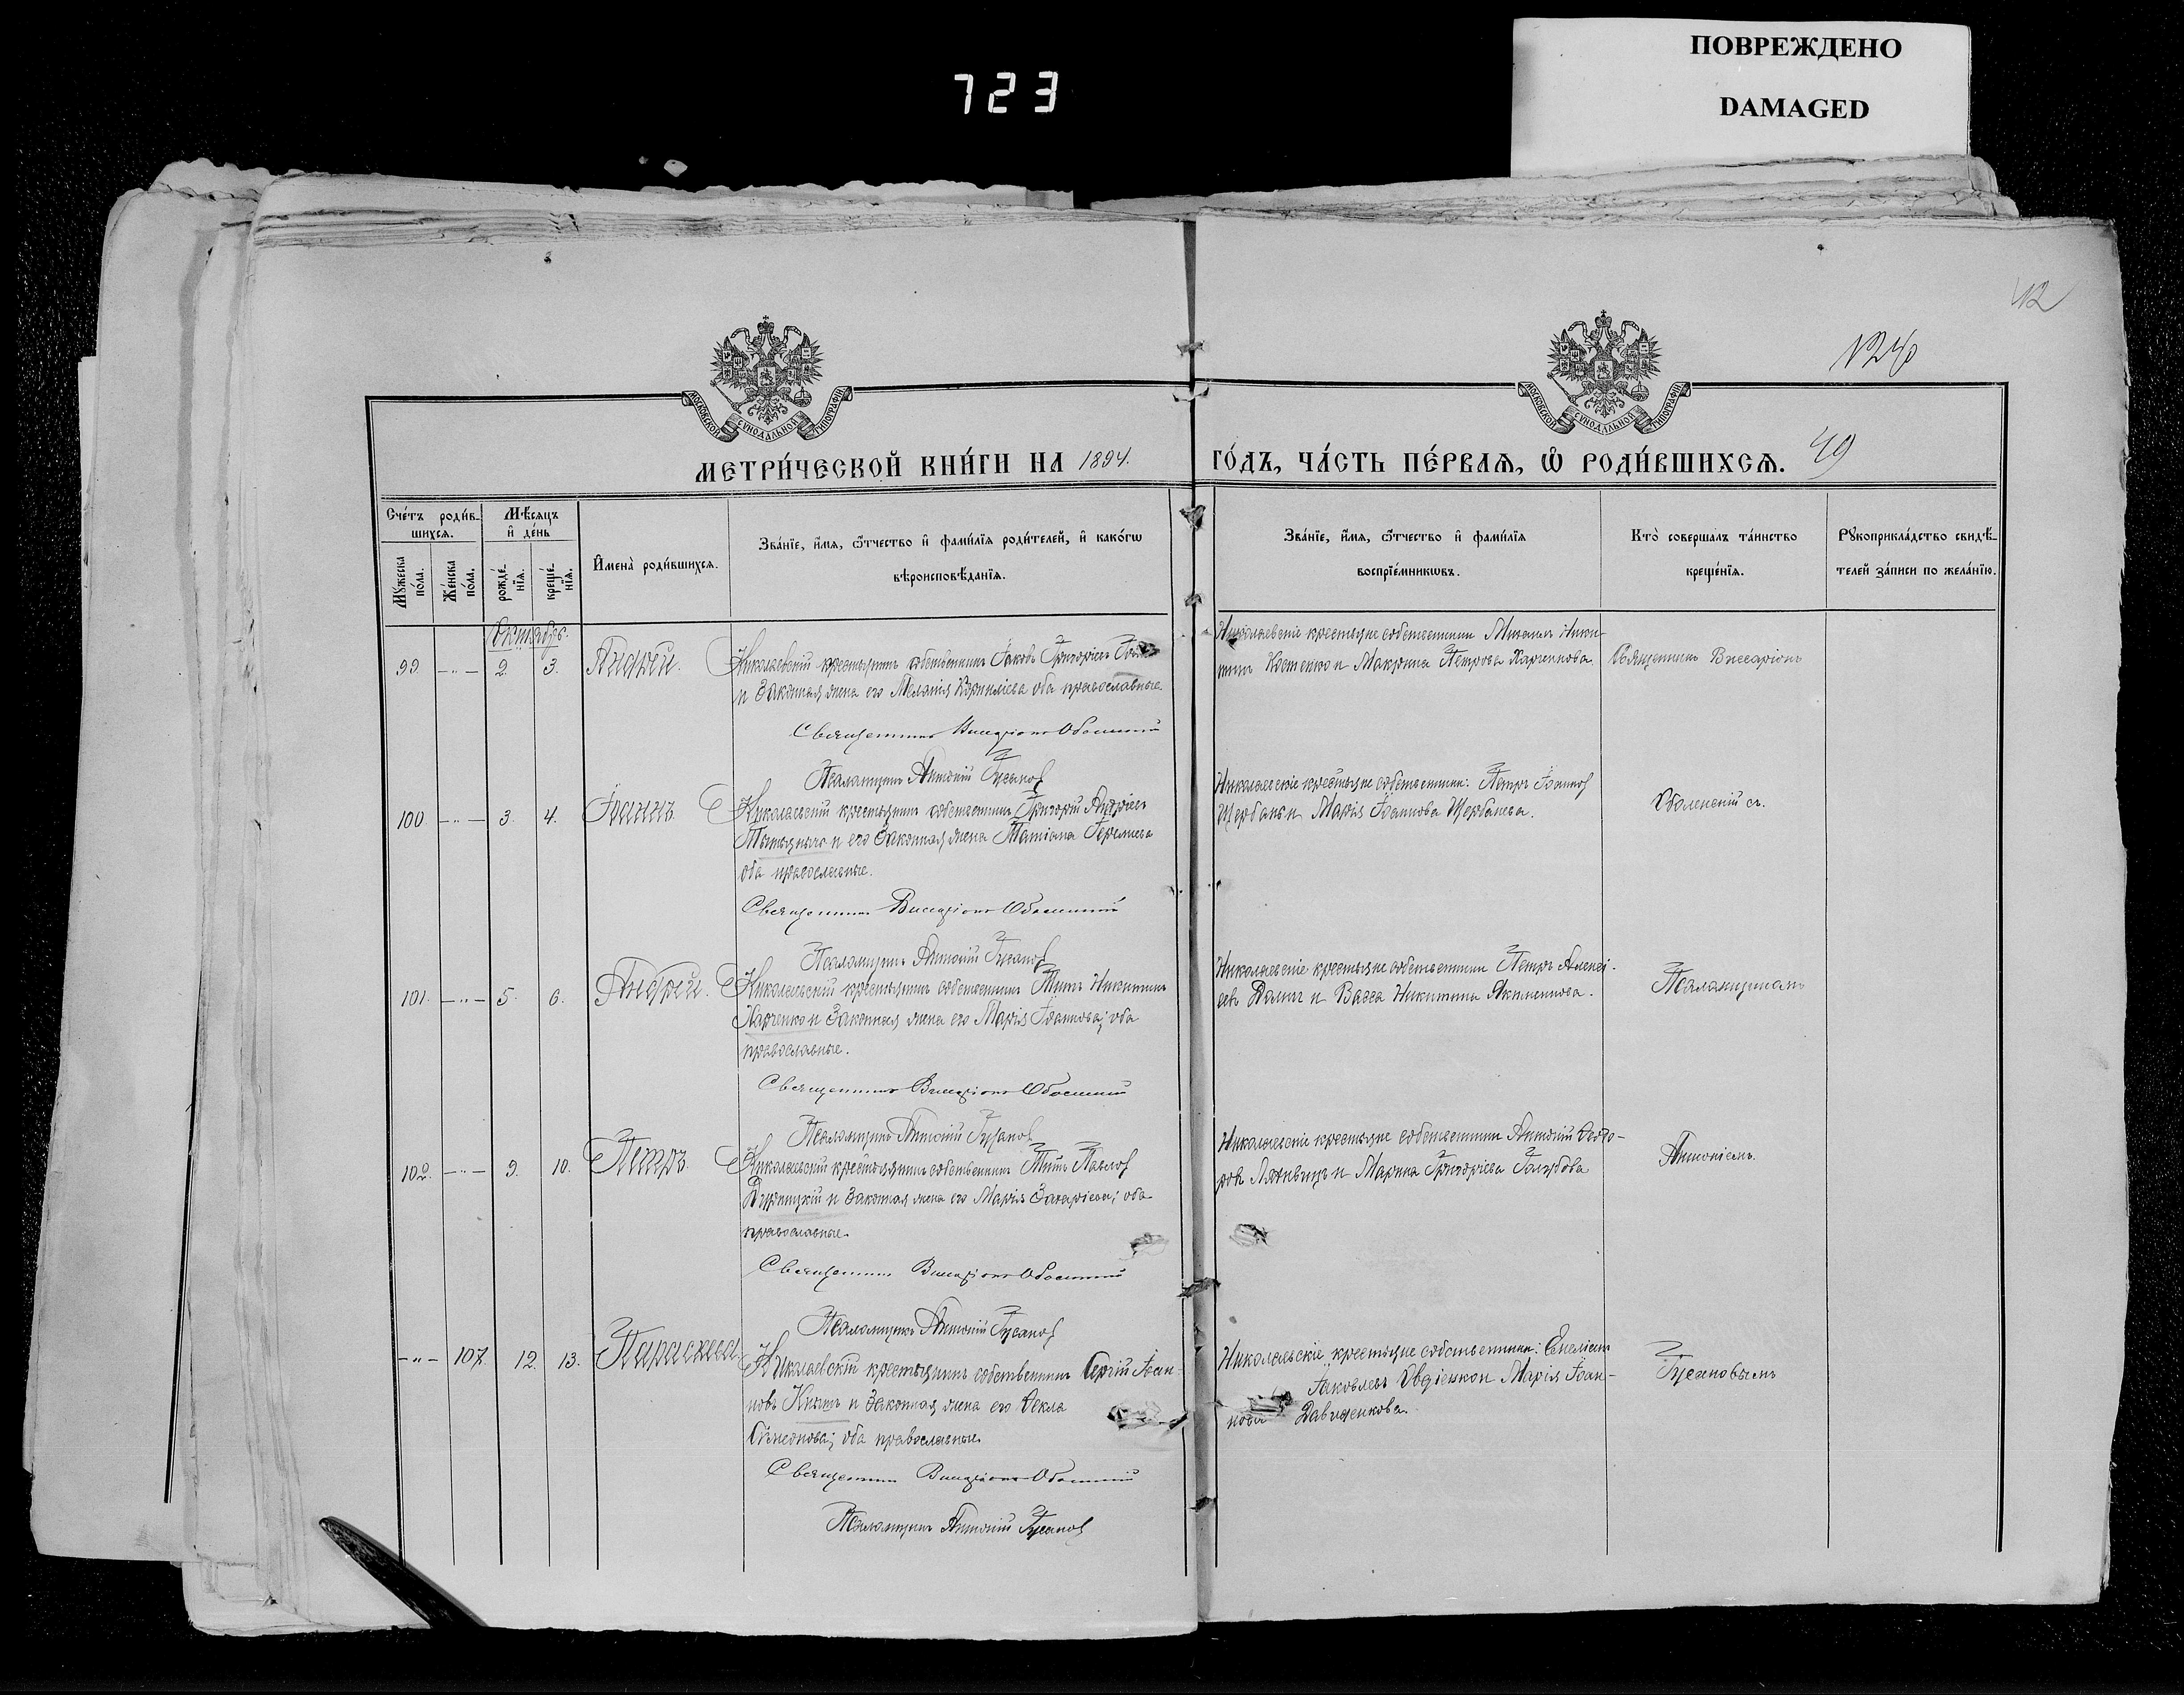 723
ПОВРЕЖДЕНО
DAMAGED
42
124
МОСКОВСКОЙ СУНОДАЛЬНОЙ ТИПОГРАФІИ
МОСКОВСКОЙ СУНОДАЛЬНОЙ ТИПОГРАФІИ
МЕТРИ́ЧЕСКОЙ КНИ́ГИ НА 1894. ГО́ДЪ, ЧА́СТЬ ПЕ́РВАЯ, Ѡ҆ РОДИ́ВШИХСЯ. 49
Сче́тъ роди́в-
шихся.
Мѣ́сяцъ
и҆ де́нь
Мꙋ́жеска
по́ла.
Же́нска
по́ла.
рожде́-
нїя.
креще́-
нїя.
И҆мена̀ роди́вшихся.
Зва́нїе, и҆́мя, ѻ҆́тчество и҆ фами́лїя роди́телей, и҆ како́гѡ
вѣроисповѣ́данїя.
Зва́нїе, и҆́мя, ѻ҆́тчество и҆ фами́лїя
воспрїе́мникѡвъ.
Кто̀ соверша́лъ та́инство
креще́нїя.
Рꙋкоприкла́дство свидѣ́-
телей за́писи по жела́нїю.
Октябрь.
99. -"- 2. 3. Андрей. Николаевскій крестьянинъ собственникъ Іаковъ Григоріевъ
и законная жена его Меланія Корниліева оба православные.
Священникъ Виссаріонъ Оболенскій
Псаломщикъ Антоній Гусановъ
Николаевскіе крестьяне собственники Михаилъ Ники-
тинъ Костенко и Макрина Петрова Харченкова.
Священникъ Виссаріонъ
100. -"- 3. 4. Іоаннъ. Николаевскій крестьянинъ собственникъ Григорій Андреевъ
и его законная жена Татіана
оба православные.
Священникъ Виссаріонъ Оболенскій
Псаломщикъ Антоній Гусановъ
Николаевскіе крестьяне собственники: Петръ Іоанновъ
Щербань и Марія Іоаннова Щербанева.
Оболенскій съ.
101. -"- 5. 6. Андрей. Николаевскій крестьянинъ собственникъ Титъ Никитинъ
Харченко и законная жена его Марія Іоаннова; оба
православные.
Священникъ Виссаріонъ Оболенскій
Псаломщикъ Антоній Гусановъ
Николаевскіе крестьяне собственники Петръ Алексі-
евъ и Васса Никитина Якименкова.
Псаломщикомъ
102. -"- 9. 10. Петръ. Николаевскій крестьянинъ собственникъ Титъ Павловъ
и законная жена его Марія Захаріева; оба
православные.
Священникъ Виссаріонъ Оболенскій
Псаломщикъ Антоній Гусановъ
Николаевскіе крестьяне собственники Антоній Ѳеодо-
ровъ и Марина Григоріева Голубова
Антоніемъ
-"- 107. 12. 13. Параскева. Николаевскій крестьянинъ собственникъ Сергій Іоан-
новъ и законная жена его Ѳекла
Симеонова; оба православные.
Священникъ Виссаріонъ Оболенскій
Псаломщикъ Антоній Гусановъ
Николаевскіе крестьяне собственники:
Іаковлевъ Овдіенко и Марія Іоан-
нова Давиденкова.
Гусановымъ